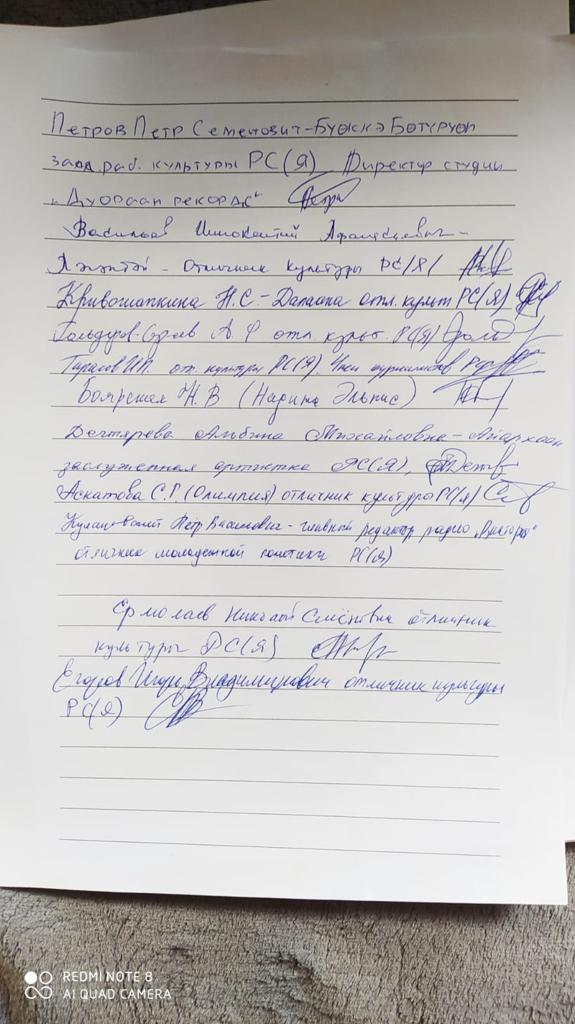 Петров Петр Семенович - Бүөккэ Бөтүрүөп
засл. раб. культуры РС(Я) Директор студии
"Дуораан рекордс"
Васильев Иннокентий Афанасьевич -
- Отличник культуры РС(Я)
Кривошапкина Н.С - Далаана отл. культ РС(Я)
А Ф отл. культ. РС(Я)
Тарасов И.П. от. культуры РС(Я). Член журналистов РФ
Боярская Н.В (Надина Эльпис)
Дегтярева Альбина Михайловна -
заслуженная артистка РС(Я),
Аскатова С.Г. (Олимпия) отличник культуры РС(Я)
Кулаковский Пётр Васильевич - главный редактор радио "Виктория"
отличник молодежной политики РС(Я)
Ермолаев Николай Семёнович отличник
культуры РС(Я)
Егоров Игорь Владимирович отличник культуры
РС(Я)
REDMI NOTE 8
AI QUAD CAMERA